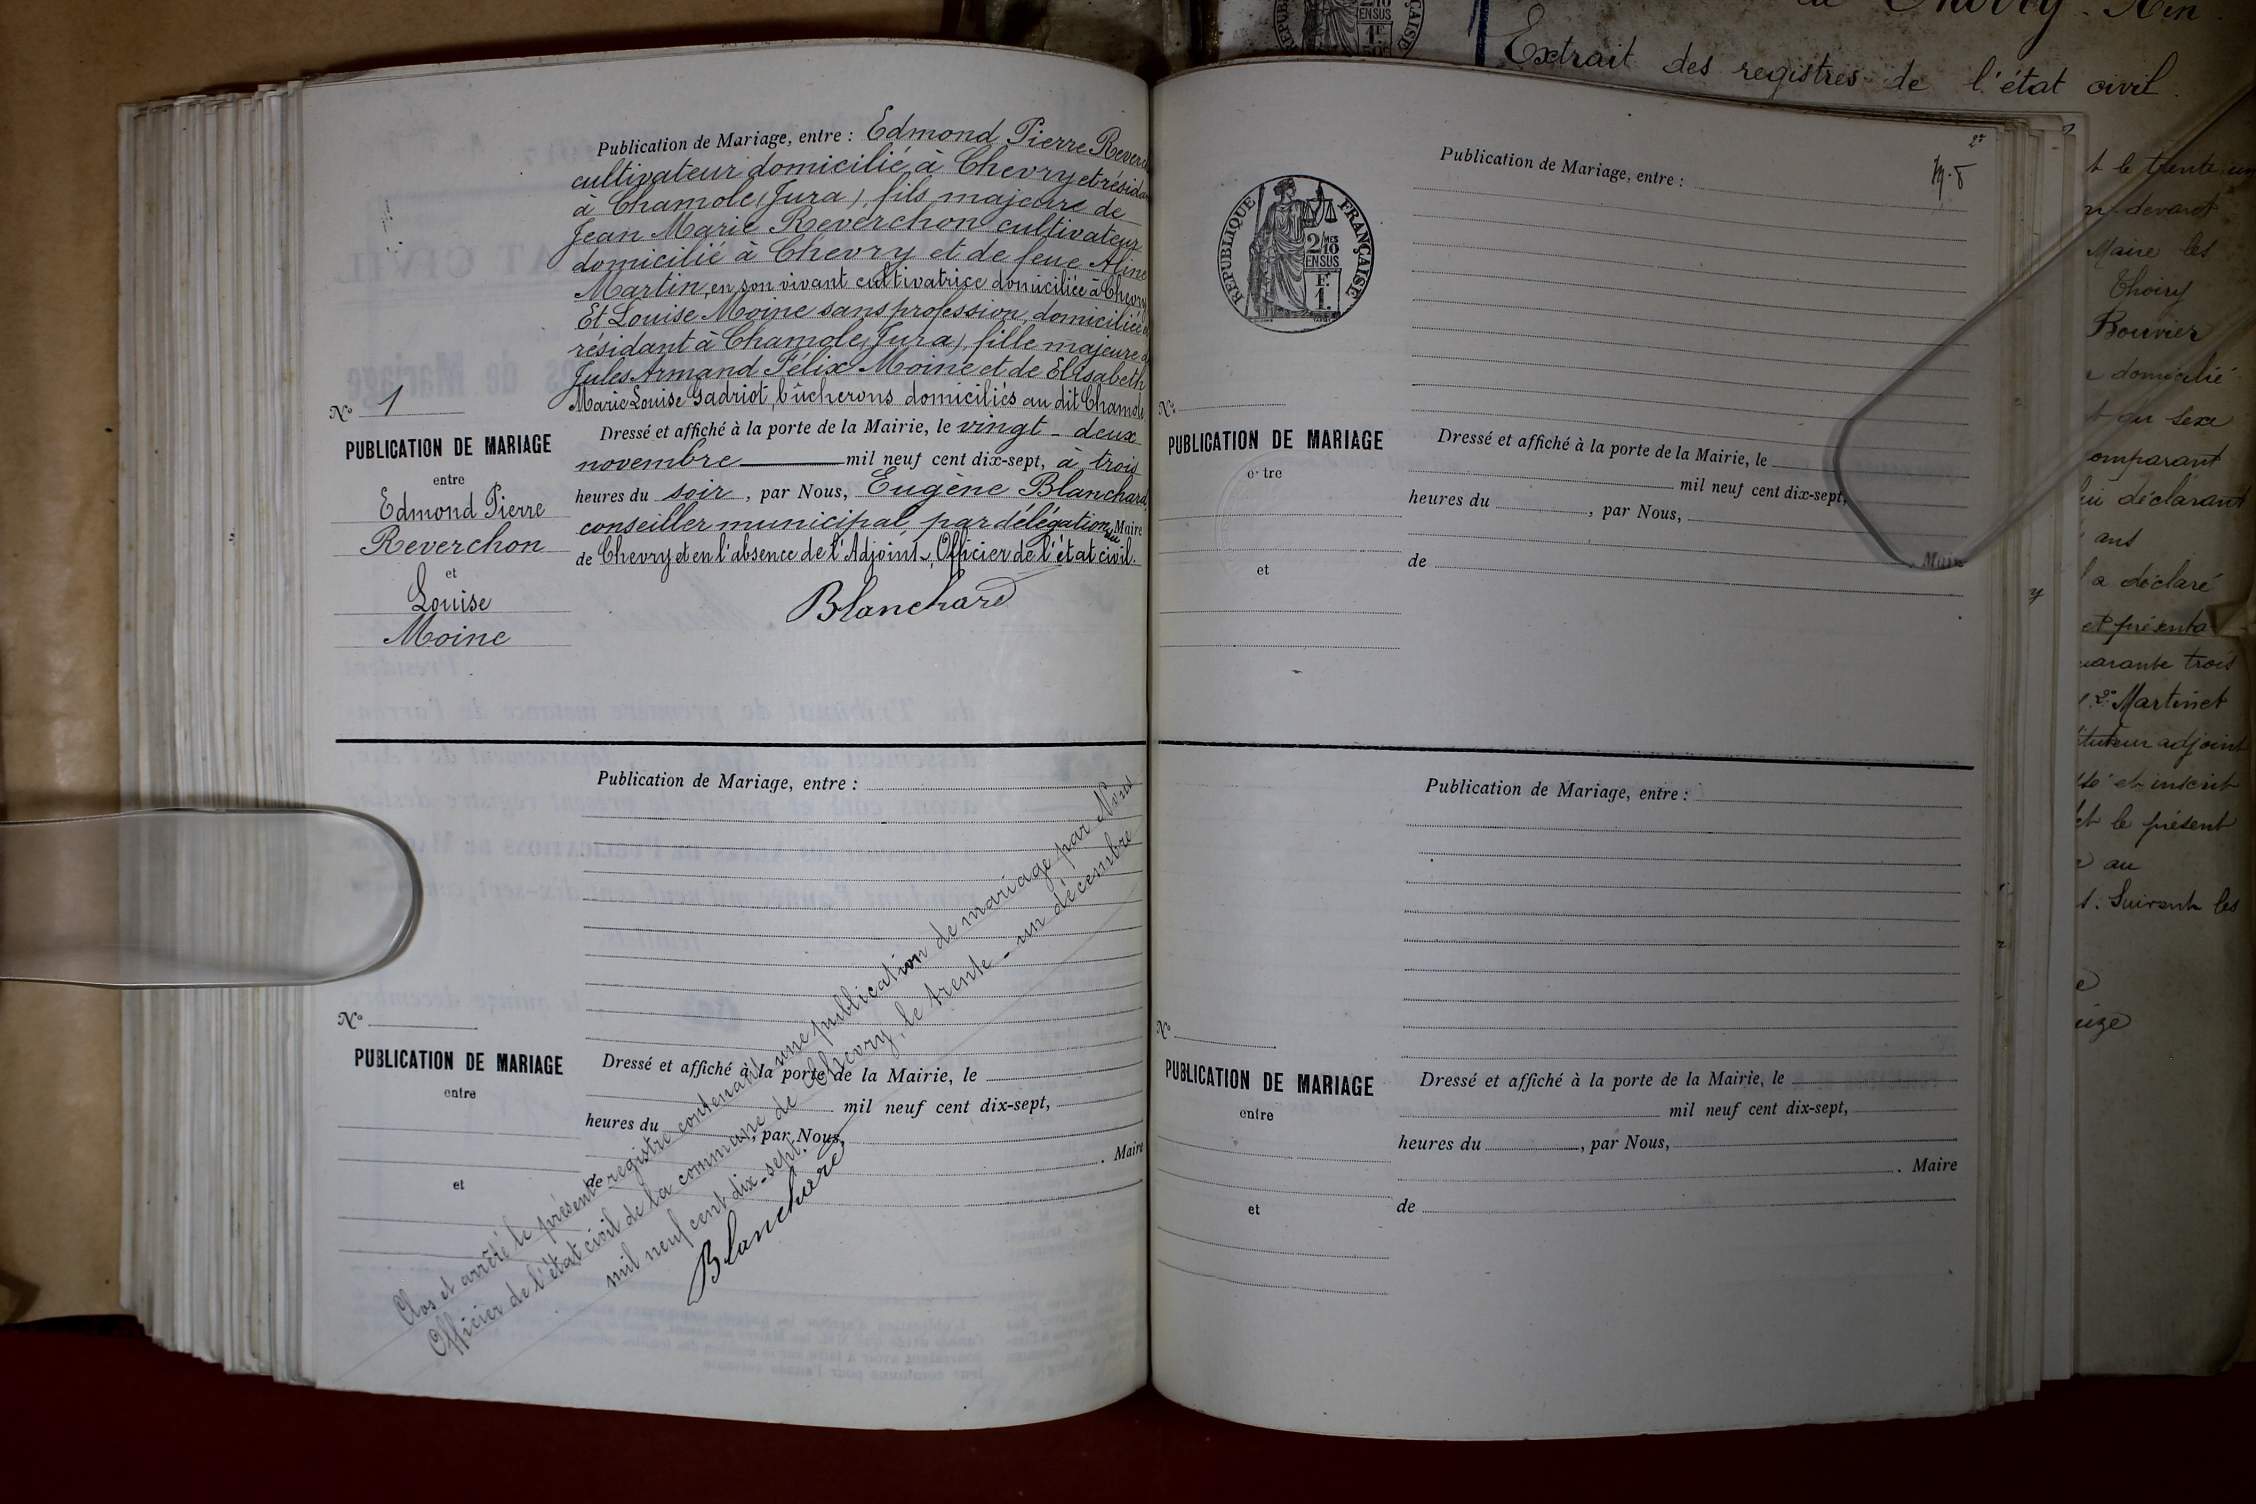 Publication de Mariage, entre : Edmond Pierre
cultivateur domicilié à Chevry et
à Chamole (Jura), fils majeure de
Jean Marie Reverchon cultivateur
domicilié à Chevry et de feue Aline
Martin, en son vivant cultivatrice domiciliée à Chevry
Et Louise Moine sans profession, domiciliée
résidant à Chamole (Jura), fille majeure
Jules Armand Félix Moine et de Elisabeth
Marie Louise Gadriot, bûcherons domiciliés au dit Chamole
Dressé et affiché à la porte de la Mairie, le vingt-deux
novembre mil neuf cent dix-sept, à trois
heures du soir, par Nous, Eugène Blanchard
conseiller municipal, par délégation du Maire
de Chevry et en l'absence de l'Adjoint, Officier de l'état civil.
Blanchard
N° 1
PUBLICATION DE MARIAGE
entre
Edmond Pierre
Reverchon
et
Louise
Moine
Publication de Mariage, entre :
N°
PUBLICATION DE MARIAGE
entre
et
Dressé et affiché à la porte de la Mairie, le
mil neuf cent dix-sept,
heures du , par Nous,
de . Maire
Clos et arrêté le présent registre contenant une publication de mariage par Nous
Officier de l'état civil de la commune de Chevry, le trente-un décembre
mil neuf cent dix-sept.
Blanchard
2
Publication de Mariage, entre :
RÉPUBLIQUE FRANÇAISE
2/10
EN SUS
F.
1.
N°
PUBLICATION DE MARIAGE
entre
et
Dressé et affiché à la porte de la Mairie, le
mil neuf cent dix-sept,
heures du , par Nous,
de . Maire
Publication de Mariage, entre :
N°
PUBLICATION DE MARIAGE
entre
et
Dressé et affiché à la porte de la Mairie, le
mil neuf cent dix-sept,
heures du , par Nous,
. Maire
de
Extrait des registres de l'état civil.
le trente un
devant
Maire les
Thoiry
Bouvier
domicilié
au sexe
comparant
déclarant
ans
a déclaré
et présenta
quarante trois
2° Martinet
adjoint
et inscrit
et le présent
au
Suivant les